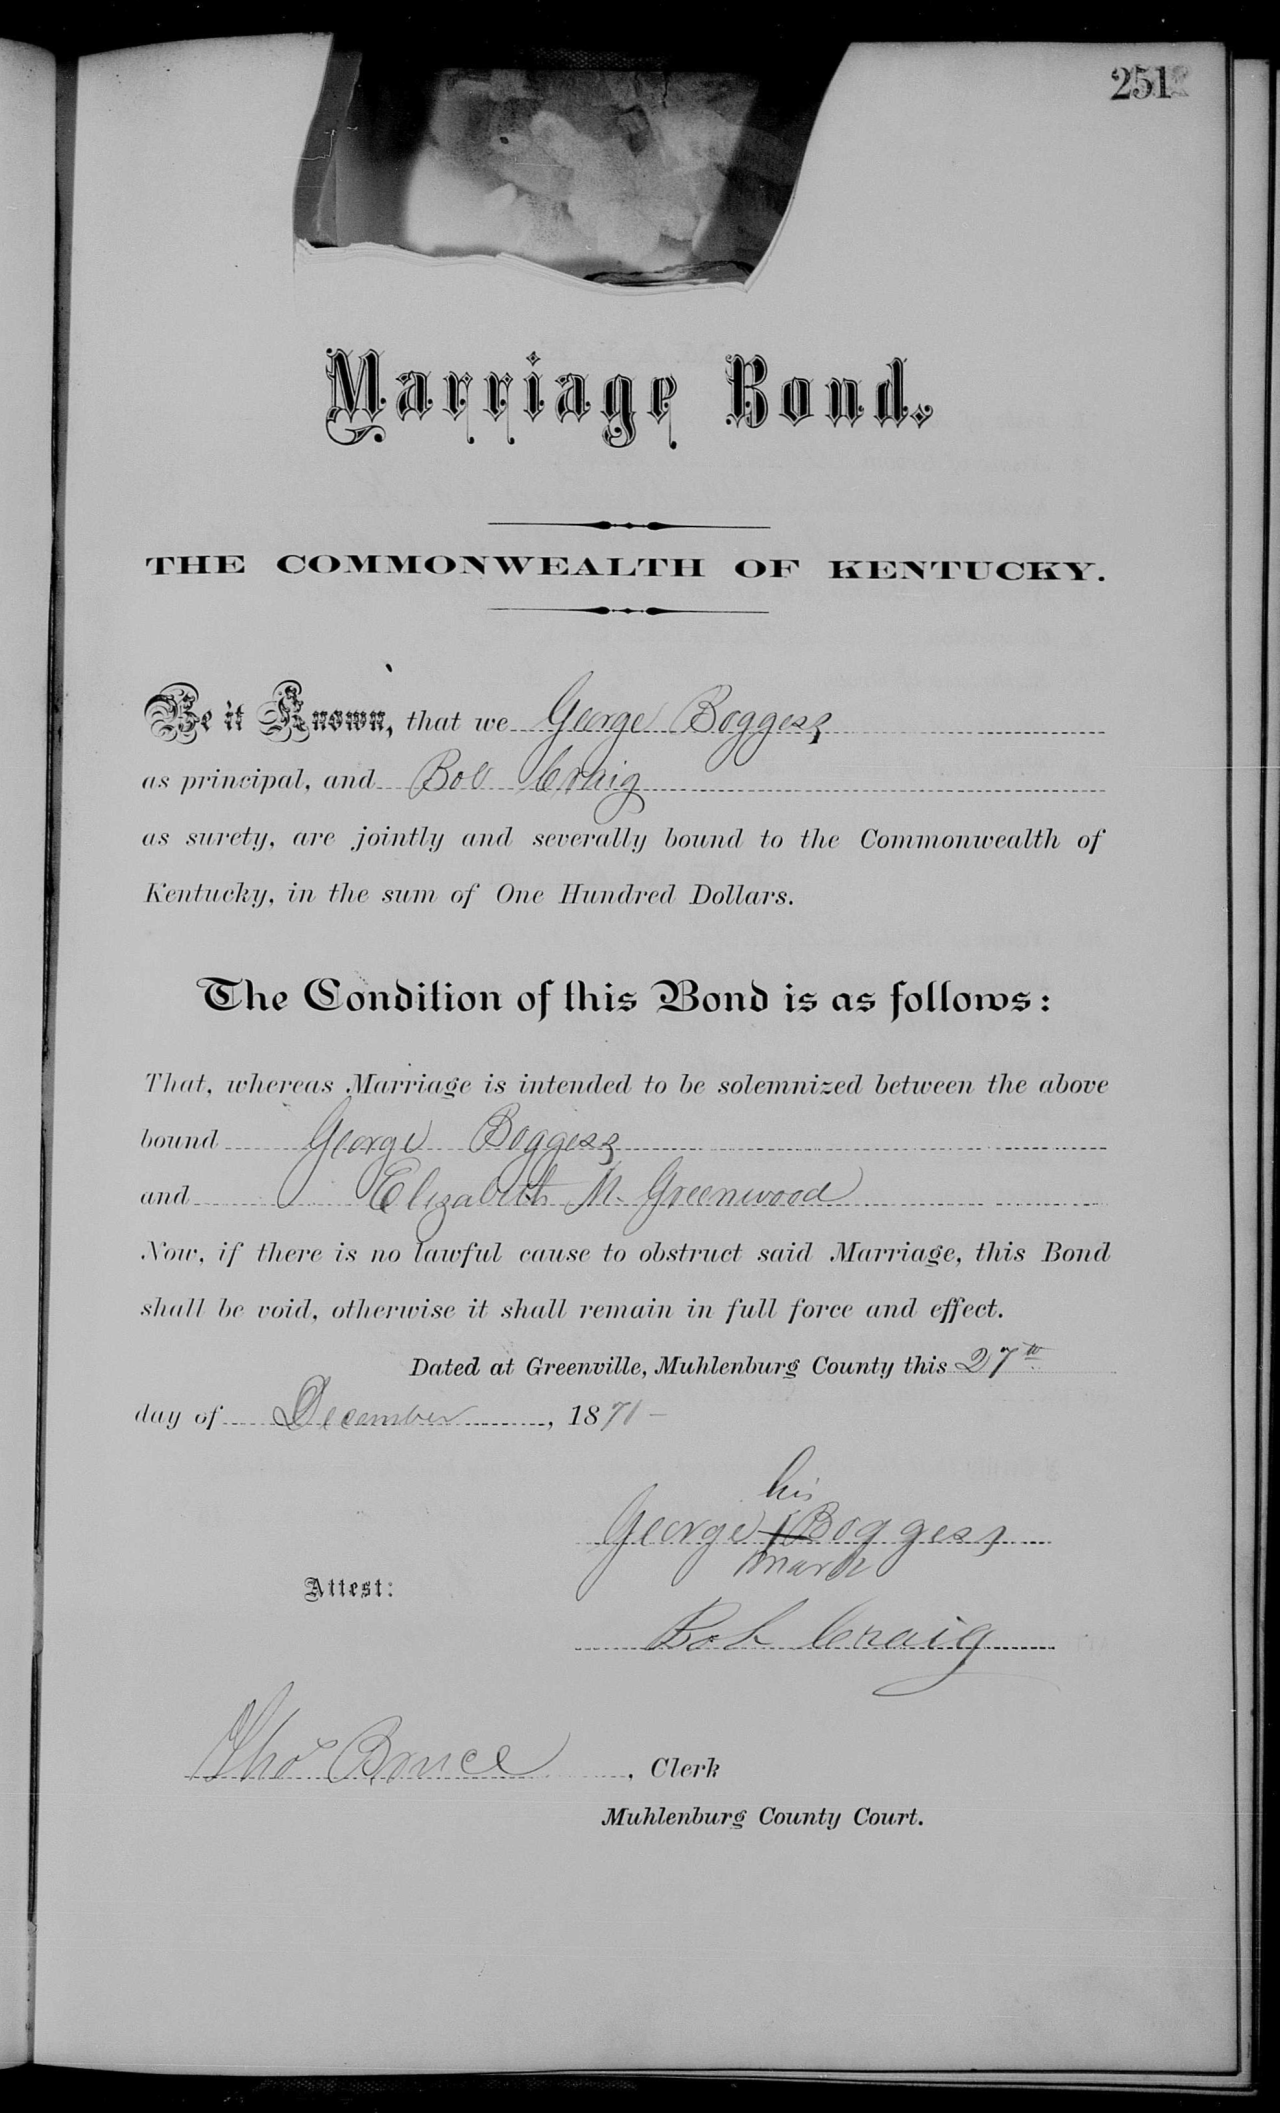 251
Marriage Bond.
THE COMMONWEALTH OF KENTUCKY.
Be it Known, that we George Boggess
as principal, and Bob Craig
as surety, are jointly and severally bound to the Commonwealth of
Kentucky, in the sum of One Hundred Dollars.
The Condition of this Bond is as follows:
That, whereas Marriage is intended to be solemnized between the above
bound George Boggess
and Elizabeth M. Greenwood
Now, if there is no lawful cause to obstruct said Marriage, this Bond
shall be void, otherwise it shall remain in full force and effect.
Dated at Greenville, Muhlenburg County this 27th
day of December, 1871
his
George X Boggess
mark
Attest:
Bob Craig
Thos Bruce, Clerk
Muhlenburg County Court.